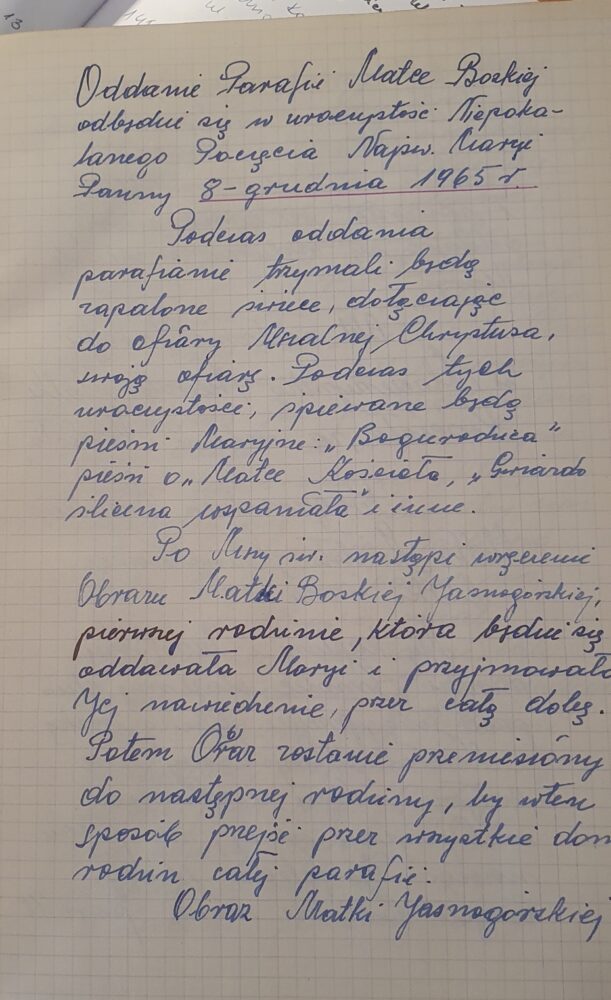 13
Oddanie Parafii Matce Boskiej
odbędzie się w uroczystość Niepoka-
lanego Poczęcia Najśw. Maryi
Panny 8-grudnia 1965 r.
Podczas oddania
parafianie trzymali będą
zapalone świece, dołączając
do ofiary Mszalnej Chrystusa,
swoją ofiarę. Podczas tych
uroczystości, śpiewane będą
pieśni Maryjne: „Bogurodzica"
pieśń o „Matce Kościoła, „Gwiazdo
śliczna wspaniała" i inne.
Po Mszy św. nastąpi wręczenie
Obrazu Matki Boskiej Jasnogórskiej,
pierwszej rodzinie, która będzie się
oddawała Maryi i przyjmowała
Jej nawiedzenie, przez całą dobę.
Potem Obraz zostanie przeniesiony
do następnej rodziny, by w ten
sposób przejść przez wszystkie dom
rodzin całej parafii.
Obraz Matki Jasnogórskiej